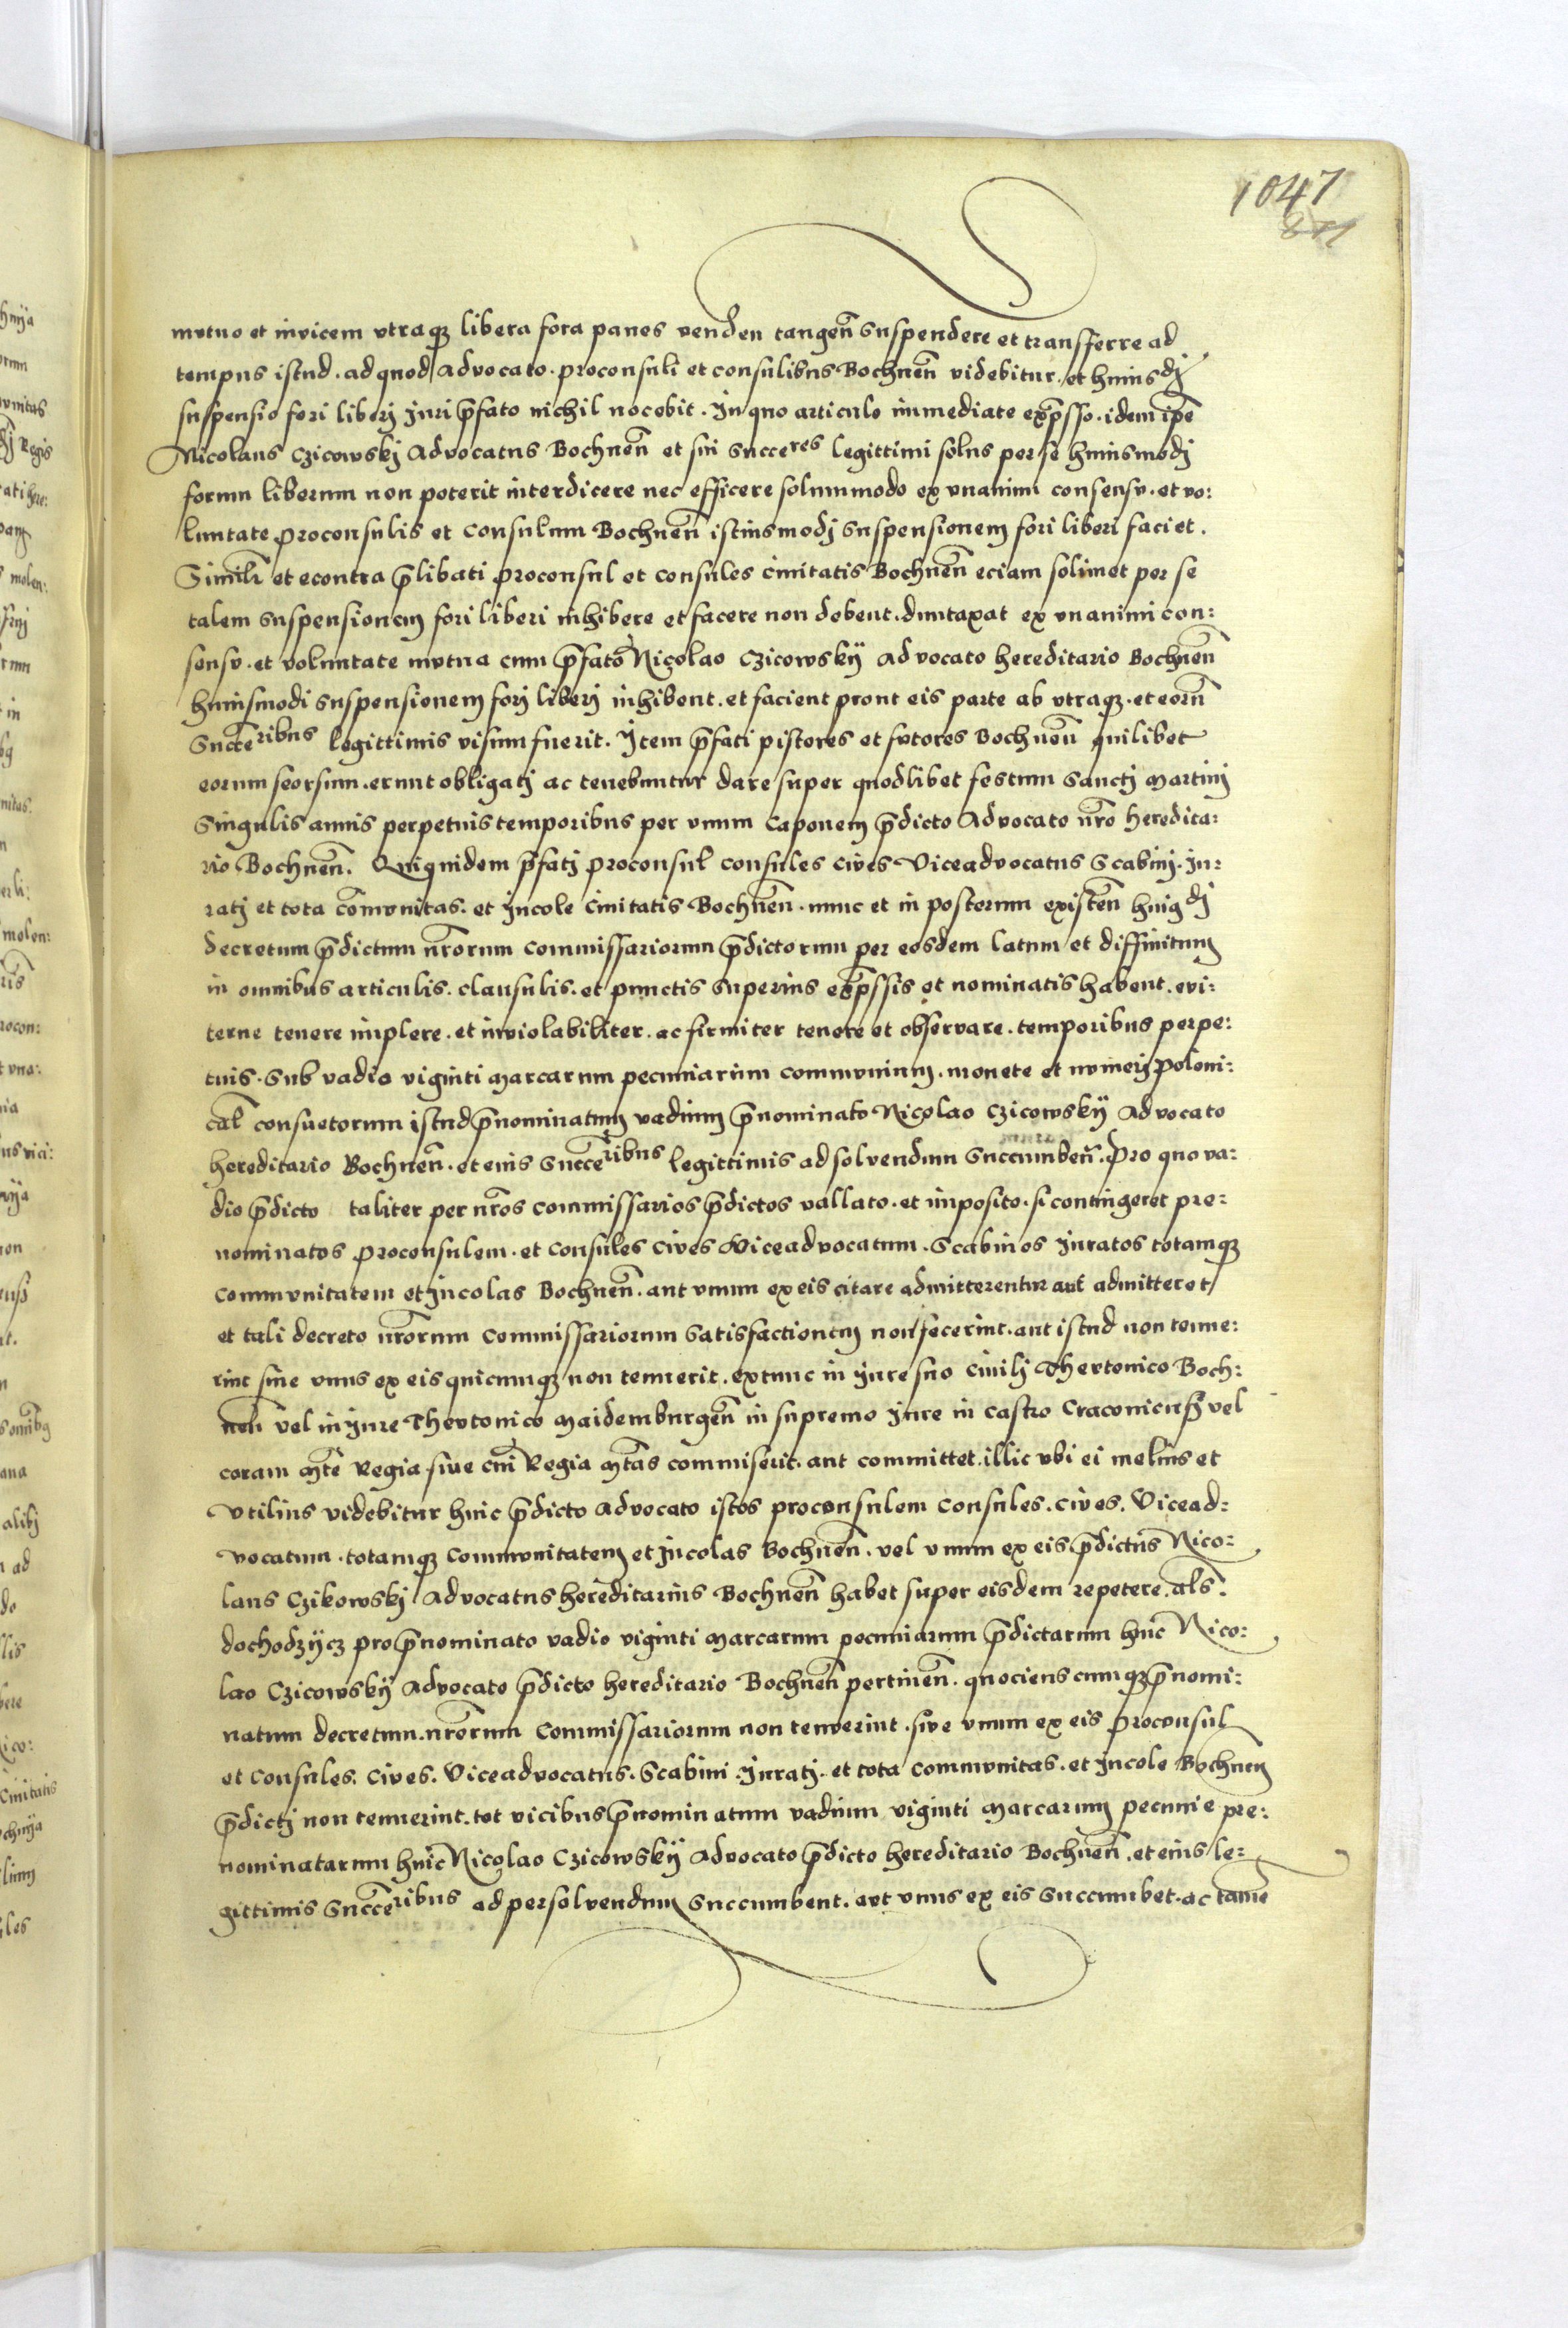 1047
mutuo et invicem utraqz libera fora panes venden tangen̄ suspendere et transferre ad
tempus istud . ad quod Advocato . proconsuli et consulibus Bochnen̄ videbitur . et huiusdj
suspensio fori liberj Juri p̄fato nichil nocebit . In quo articulo immediate exp̄sso . idem ip̄e
Nicolaus Czicowskj Advocatus Bochnen̄ et sui succeres legittimi solus per se huiusmodj
forum liberum non poterit interdicere nec efficere solummodo ex unanimi consensu . et vo:
luntate proconsulis et Consulum Bochnen̄ istiusmodj suspensionem fori liberi faciet .
Similr̄ et econtra p̄libati proconsul et consules Civitatis Bochnen̄ eciam solimet per se
talem suspensionem fori liberi inhibere et facere non debent . duntaxat ex unanimi con:
sensu . et voluntate mutua cum p̄fato Nicolao Czicowskÿ Advocato hereditario Bochnen̄
huiusmodi suspensionem forj liberj inhibent . et facient prout eis parte ab utraqz . et eorū
Succeribus legittimis visum fuerit . Item p̄fati pistores et sutores Bochnen̄ quilibet
eorum seorsum . erunt obligatj ac tenebuntur dare super quodlibet festum Sanctj Martinj
Singulis annis perpetuis temporibus per unum Caponem p̄dicto Advocato nr̄o heredita:
rio Bochnen̄ . Quiquidem p̄fatj proconsul consules Cives Viceadvocatus Scabinj . Ju:
ratj et tota cōmunitas . et Jncole Civitatis Bochnen̄ . nunc et in posterum existen̄ huiqdj
decretum p̄dictum nr̄orum Commissariorum p̄dictorum per eosdem latum et diffinitum
in omnibus articulis . clausulis . et punctis superius exp̄ssis et nominatis habent . evi:
terne tenere implere . et inviolabiliter . ac firmiter tenere et observare . temporibus perpe:
tuis . Sub vadio viginti Marcarum pecuniarum communium . monete et numerj poloni:
cal̄ consuetorum istud p̄nominatum vadium p̄nominato Nicolao Czicowskÿ Advocato
hereditario Bochnen̄ . et eius Succeribus legittimis ad solvendum Succumben̄ . Pro quo va:
dio p̄dicto taliter per nr̄os Commissarios p̄dictos vallato . et imposito . si contingeret pre:
nominatos proconsulem . et Consules Cives Viceadvocatum . Scabinos Juratos totamqz
Communitatem et Jncolas Bochnen̄ . aut unum ex eis citare admitterentur aut admitteret
et tali decreto nr̄orum Commissariorum Satisfactionem non fecerint . aut istud non tenue:
rint sive unus ex eis quicumqz non tenuerit . extunc in jure suo Civilj Theutonico Boch:
nen̄ vel in Jure Theutonico Maidemburgen̄ in supremo Jure in Castro Craconiensi vel
coram Mte Regia sive cui Regia Mtas commiserit . aut committet . illic ubi ei melius et
utilius videbitur huic p̄dicto Advocato istos proconsulem Consules . Cives . Vicead:
vocatum . totamqz Communitatem et Jncolas Bochnen̄ . vel unum ex eis p̄dictus Nico:
laus Czikowskj Advocatus hereditarius Bochnen̄ habet super eisdem repetere . als̄ .
dochodzÿcz pro p̄nominato vadio viginti Marcarum pecuniarum p̄dictarum huic Nico:
lao Czicowskÿ Advocato p̄dicto hereditario Bochnen̄ pertinen̄ . quocienscumqz p̄nomi:
natum decretum . nr̄orum Commissariorum non tenuerint . sive unum ex eis proconsul
et Consules . Cives . Viceadvocatus . Scabini . Juratj . et tota Communitas . et Jncole Bochnen̄
p̄dictj non tenuerint . tot vicibus p̄nominatum vadium viginti Marcarum pecunie pre:
nominatarum huic Nicolao Czicowskÿ Advocato p̄dicto hereditario Bochnen̄ . et eius le:
gittimis Succeribus ad persolvendum Succumbent . aut unus ex eis succumbet . ac tamē